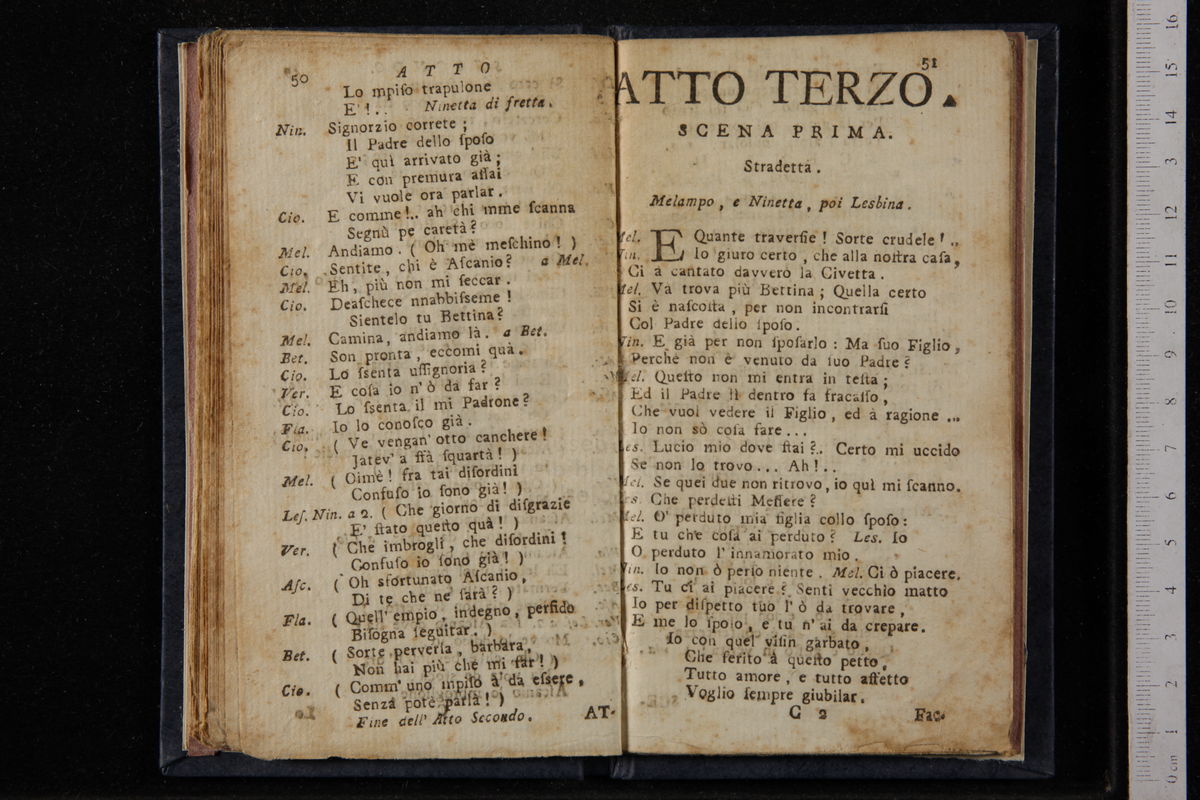 50
ATTO
Lo mpiſo trapulone
E' !.. Ninetta di fretta.
Nin. Signorzio correte ;
Il Padre dello ſpoſo
E' quì arrivato già ;
E con premura aſſai
Vi vuole ora parlar.
Cio. E comme !.. ah chi mme ſcanna
Segnù pe caretà ?
Mel. Andiamo. ( Oh me meſchino ! )
Cio. Sentite, chi è Aſcanio ? a Mel.
Mel. Eh, più non mi ſeccar.
Cio. Deaſchece nnabbiſseme !
Sientelo tu Bettina ?
Mel. Camina, andiamo là. a Bet.
Bet. Son pronta, eccomi quà.
Cio. Lo ſsenta uſſignoria ?
Ver. E coſa io n' ò da far ?
Cio. Lo ſsenta il mi Padrone ?
Fla. Io lo conoſco già.
Cio. ( Ve vengan' otto canchere !
Jatev' a ffà ſquartà ! )
Mel. ( Oimè ! fra tai diſordini
Confuſo io ſono già ! )
Leſ. Nin. a 2. ( Che giorno di diſgrazie
E' ſtato queſto quà ! )
Ver. ( Che imbrogli, che diſordini !
Confuſo io ſono già ! )
Aſc. ( Oh sfortunato Aſcanio,
Di te che ne ſarà ? )
Fla. ( Quell' empio, indegno, perfido
Biſogna ſeguitar. )
Bet. ( Sorte perverſa, barbara,
Non hai più che mi far ! )
Cio. ( Comm' uno mpiſo à da eſsere,
Senza potè parlà ! )
Fine dell' Atto Secondo.
AT-
51
ATTO TERZO.
SCENA PRIMA.
Stradetta.
Melampo, e Ninetta, poi Lesbina.
Mel. E Quante traverſie ! Sorte crudele ! ..
Nin. Io giuro certo, che alla noſtra caſa,
Ci à cantato davvero la Civetta.
Mel. Va trova più Bettina ; Quella certo
Si è naſcoſta, per non incontrarſi
Col Padre dello ſpoſo.
Nin. E già per non ſpoſarlo : Ma ſuo Figlio,
Perchè non è venuto da ſuo Padre ?
Mel. Queſto non mi entra in teſta ;
Ed il Padre lì dentro fa fracaſſo,
Che vuol vedere il Figlio, ed à ragione ...
Io non sò coſa fare...
Les. Lucio mio dove ſtai ?.. Certo mi uccido
Se non lo trovo... Ah !..
Mel. Se quei due non ritrovo, io quì mi ſcanno.
Les. Che perdeſti Meſſere ?
Mel. O' perduto mia figlia collo ſpoſo :
E tu che coſa ai perduto ? Les. Io
O perduto l' innamorato mio.
Nin. Io non ò perſo niente. Mel. Ci ò piacere.
Les. Tu ci ai piacere ? Senti vecchio matto
Io per diſpetto tuo l' ò da trovare,
E me lo ſpoſo, e tu n' ai da crepare.
Io con quel viſin garbato,
Che ferito à queſto petto,
Tutto amore, e tutto affetto
Voglio ſempre giubilar.
G 2
Fac-
0 cm 1 2 3 4 5 6 7 8 9 10 11 12 3 14 15 16